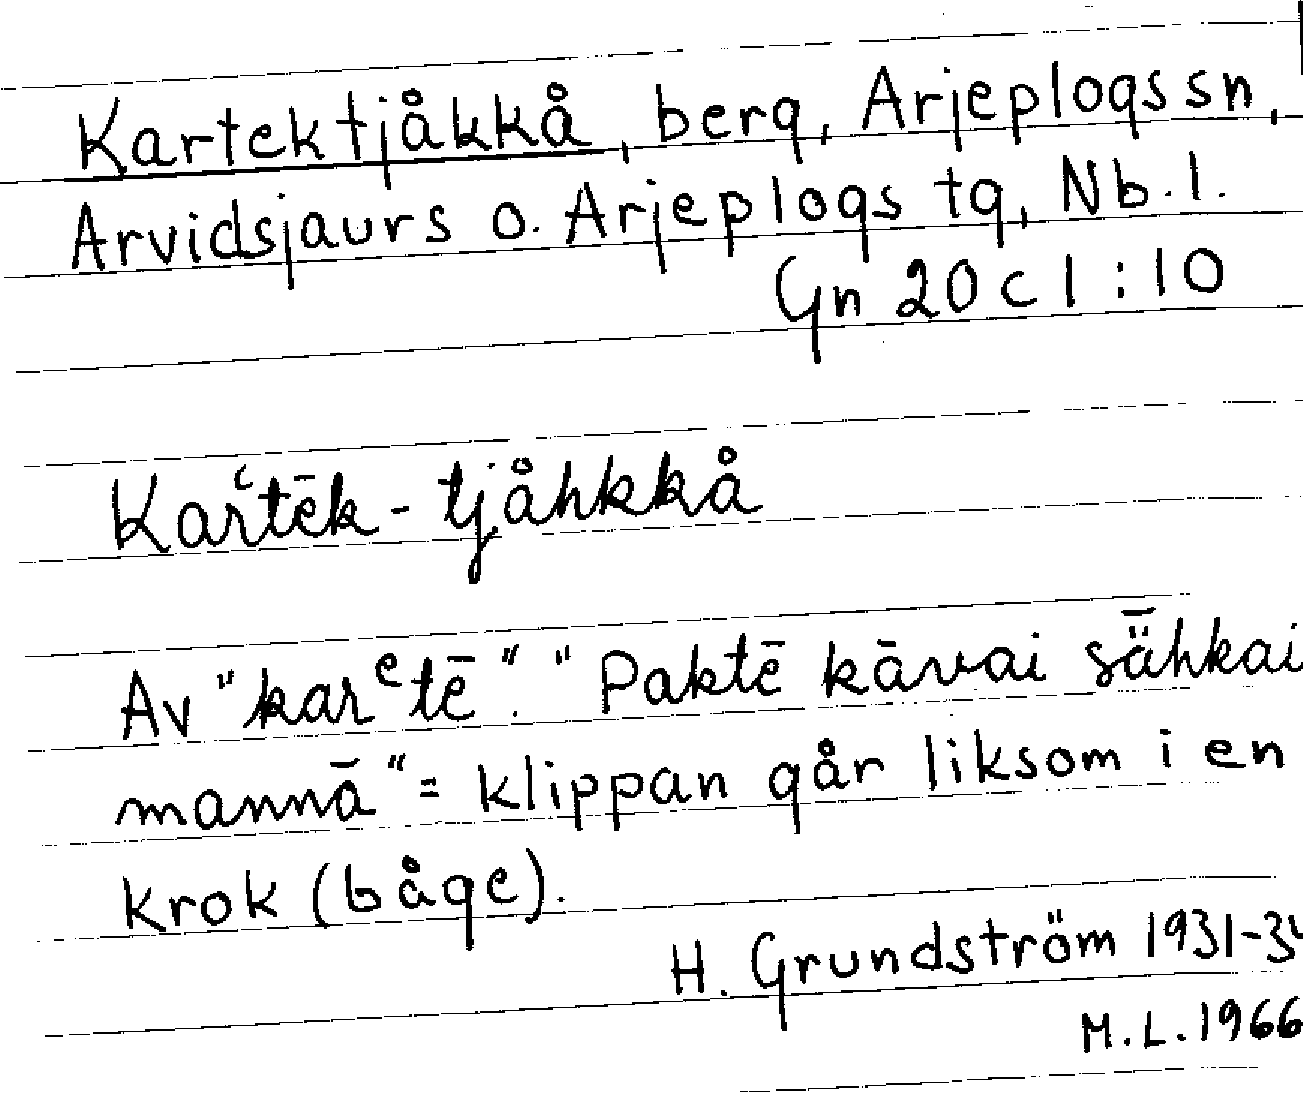 Kartektjåkkå, berg, Arjeplogs sn,
Arvidsjaurs o. Arjeplogs tg, Nb.l.
Gn 20 c 1 : 10
Karʿtēk - tjåhkkå
Av "karᵉtē". "Paktē kāvai sǟhkai
mannā" = klippan går liksom i en
krok (båge).
H. Grundström 1931-34
M.L. 1966